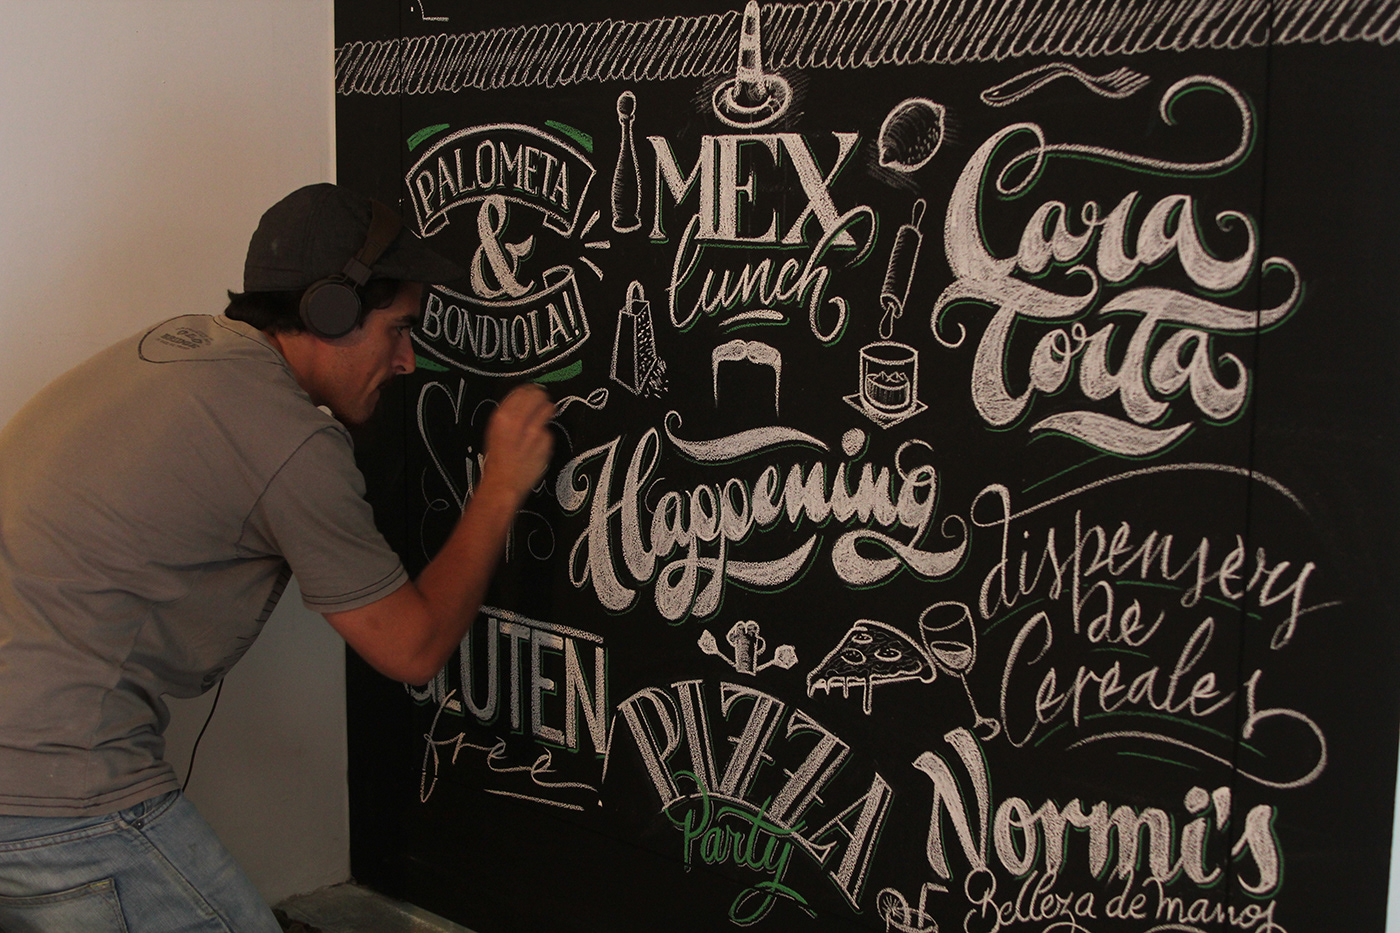 PALOMETA
&
BONDIOLA!
MEX
lunch
Cara
Torta
Happening
Dispensers
De
Cereales
GLUTEN
free
PIZZA
Party
Normi's
Belleza de manos